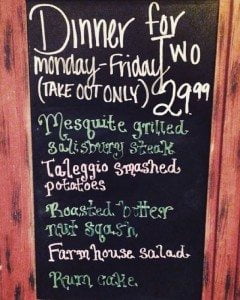 Dinner for
Two
monday-Friday
(TAKE OUT ONLY) 29.99
Mesquite grilled
salisbury steak
Taleggio smashed
potatoes
Roasted butter
nut sqash
Farmhouse salad
Rum cake